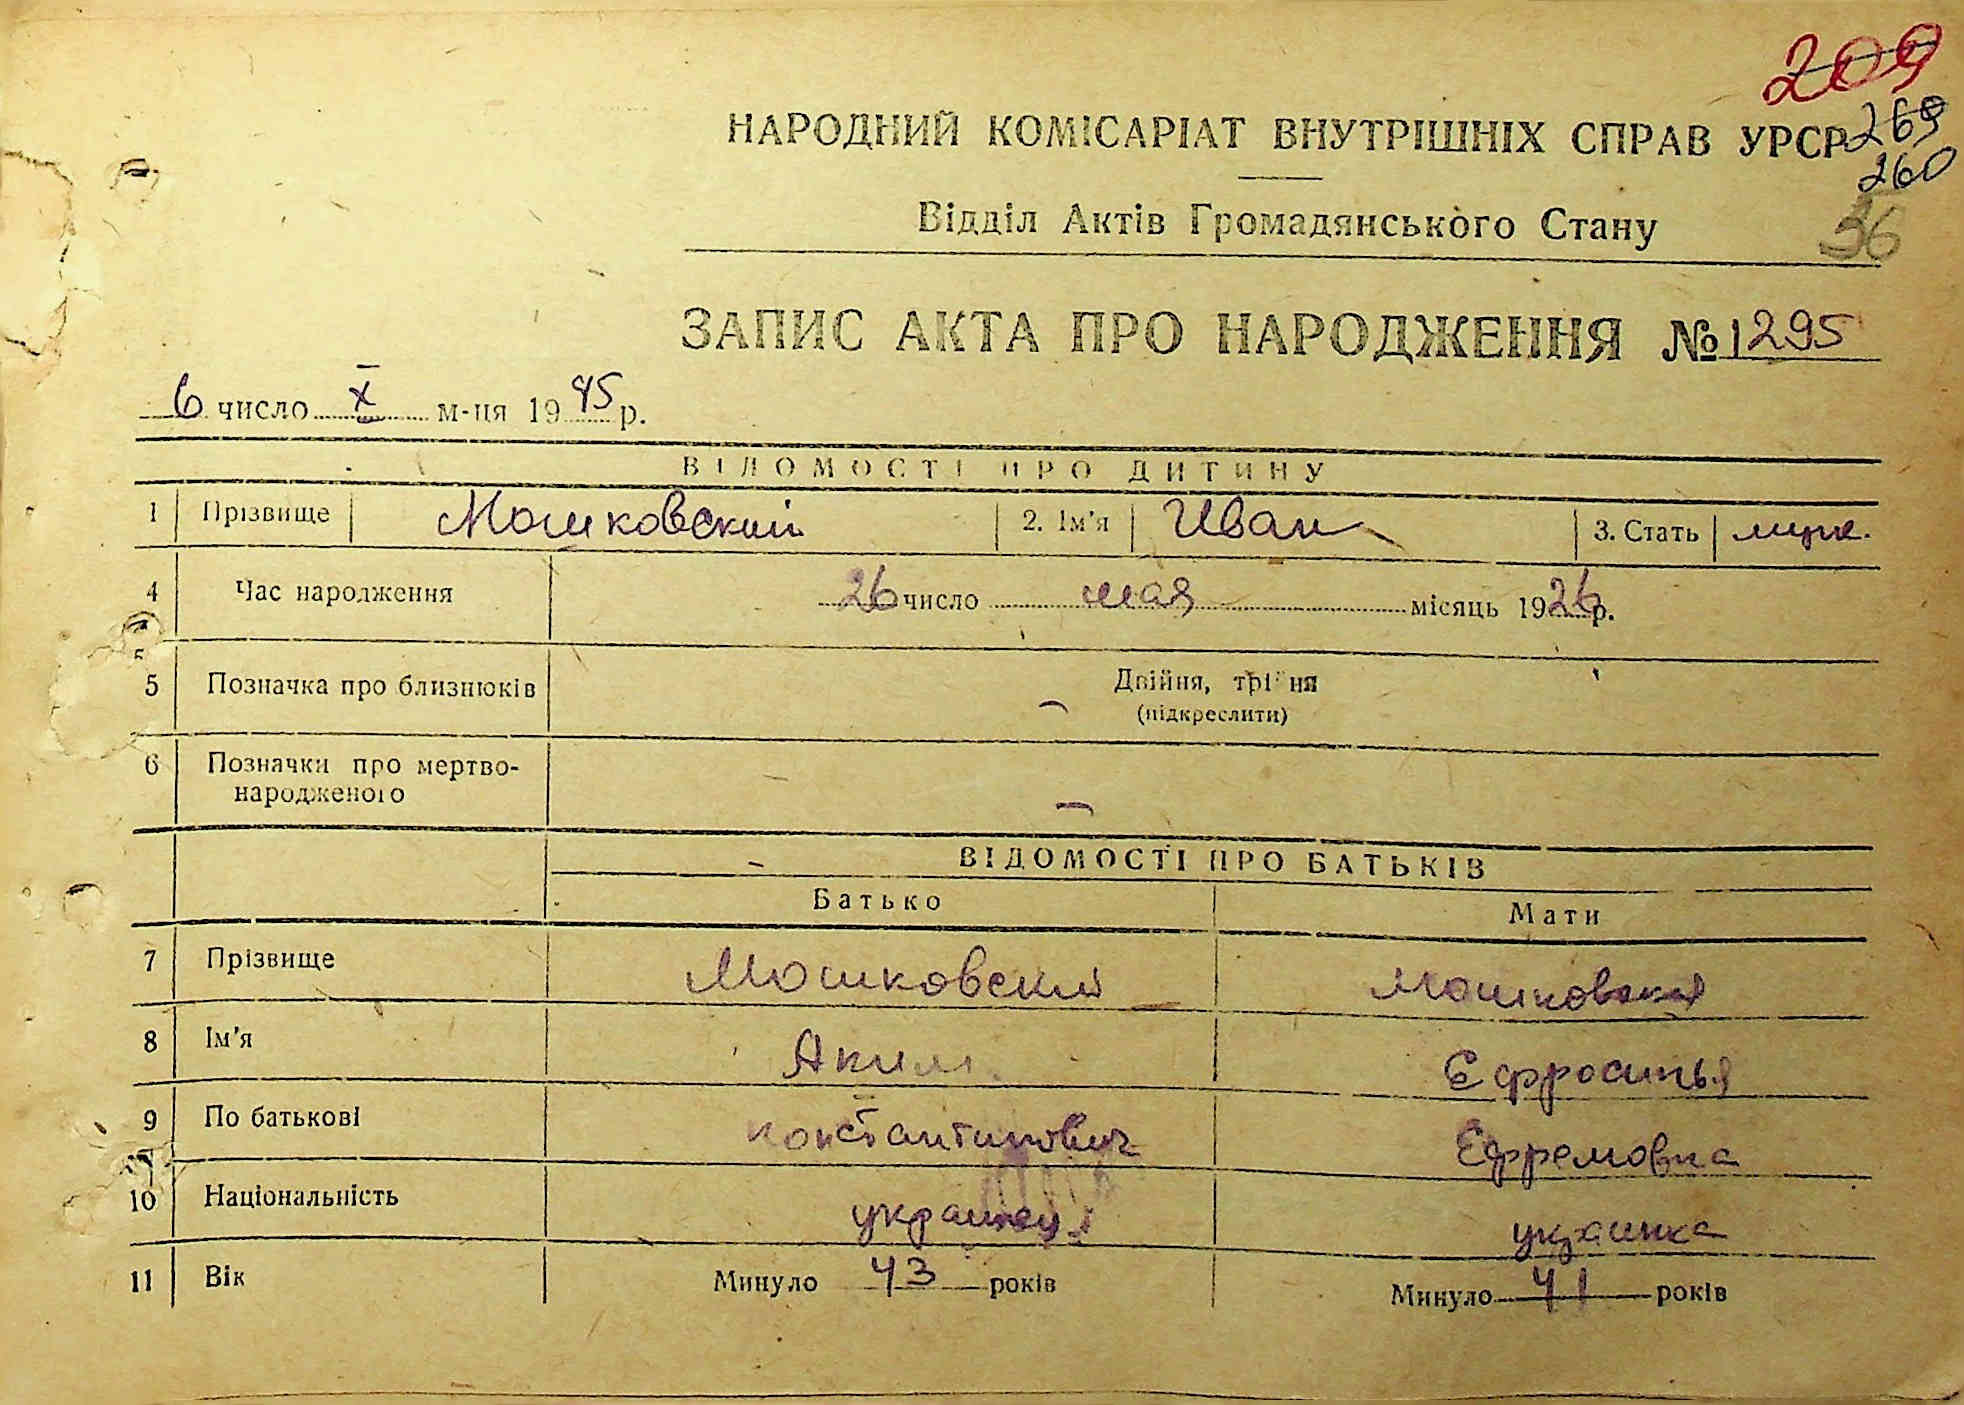 209
НАРОДНИЙ КОМІСАРІАТ ВНУТРІШНІХ СПРАВ УРСР
269
260
36
Відділ Актів Громадянського Стану
ЗАПИС АКТА ПРО НАРОДЖЕННЯ № 1295
6 число X м-ця 1945 р.
ВІДОМОСТІ ПРО ДИТИНУ
1 Прізвище Мошковский 2. Ім'я Иван 3. Стать муж.
4 Час народження 26 число мая місяць 1926 р.
5 Позначка про близнюків Двійня, трійня
(підкреслити)
6 Позначки про мертво-
народженого
ВІДОМОСТІ ПРО БАТЬКІВ
Батько Мати
7 Прізвище Мошковский Мошковская
8 Ім'я Аким Ефросинья
9 По батькові Константинович Ефремовна
10 Національність украинец украинка
11 Вік Минуло 43 років Минуло 41 років